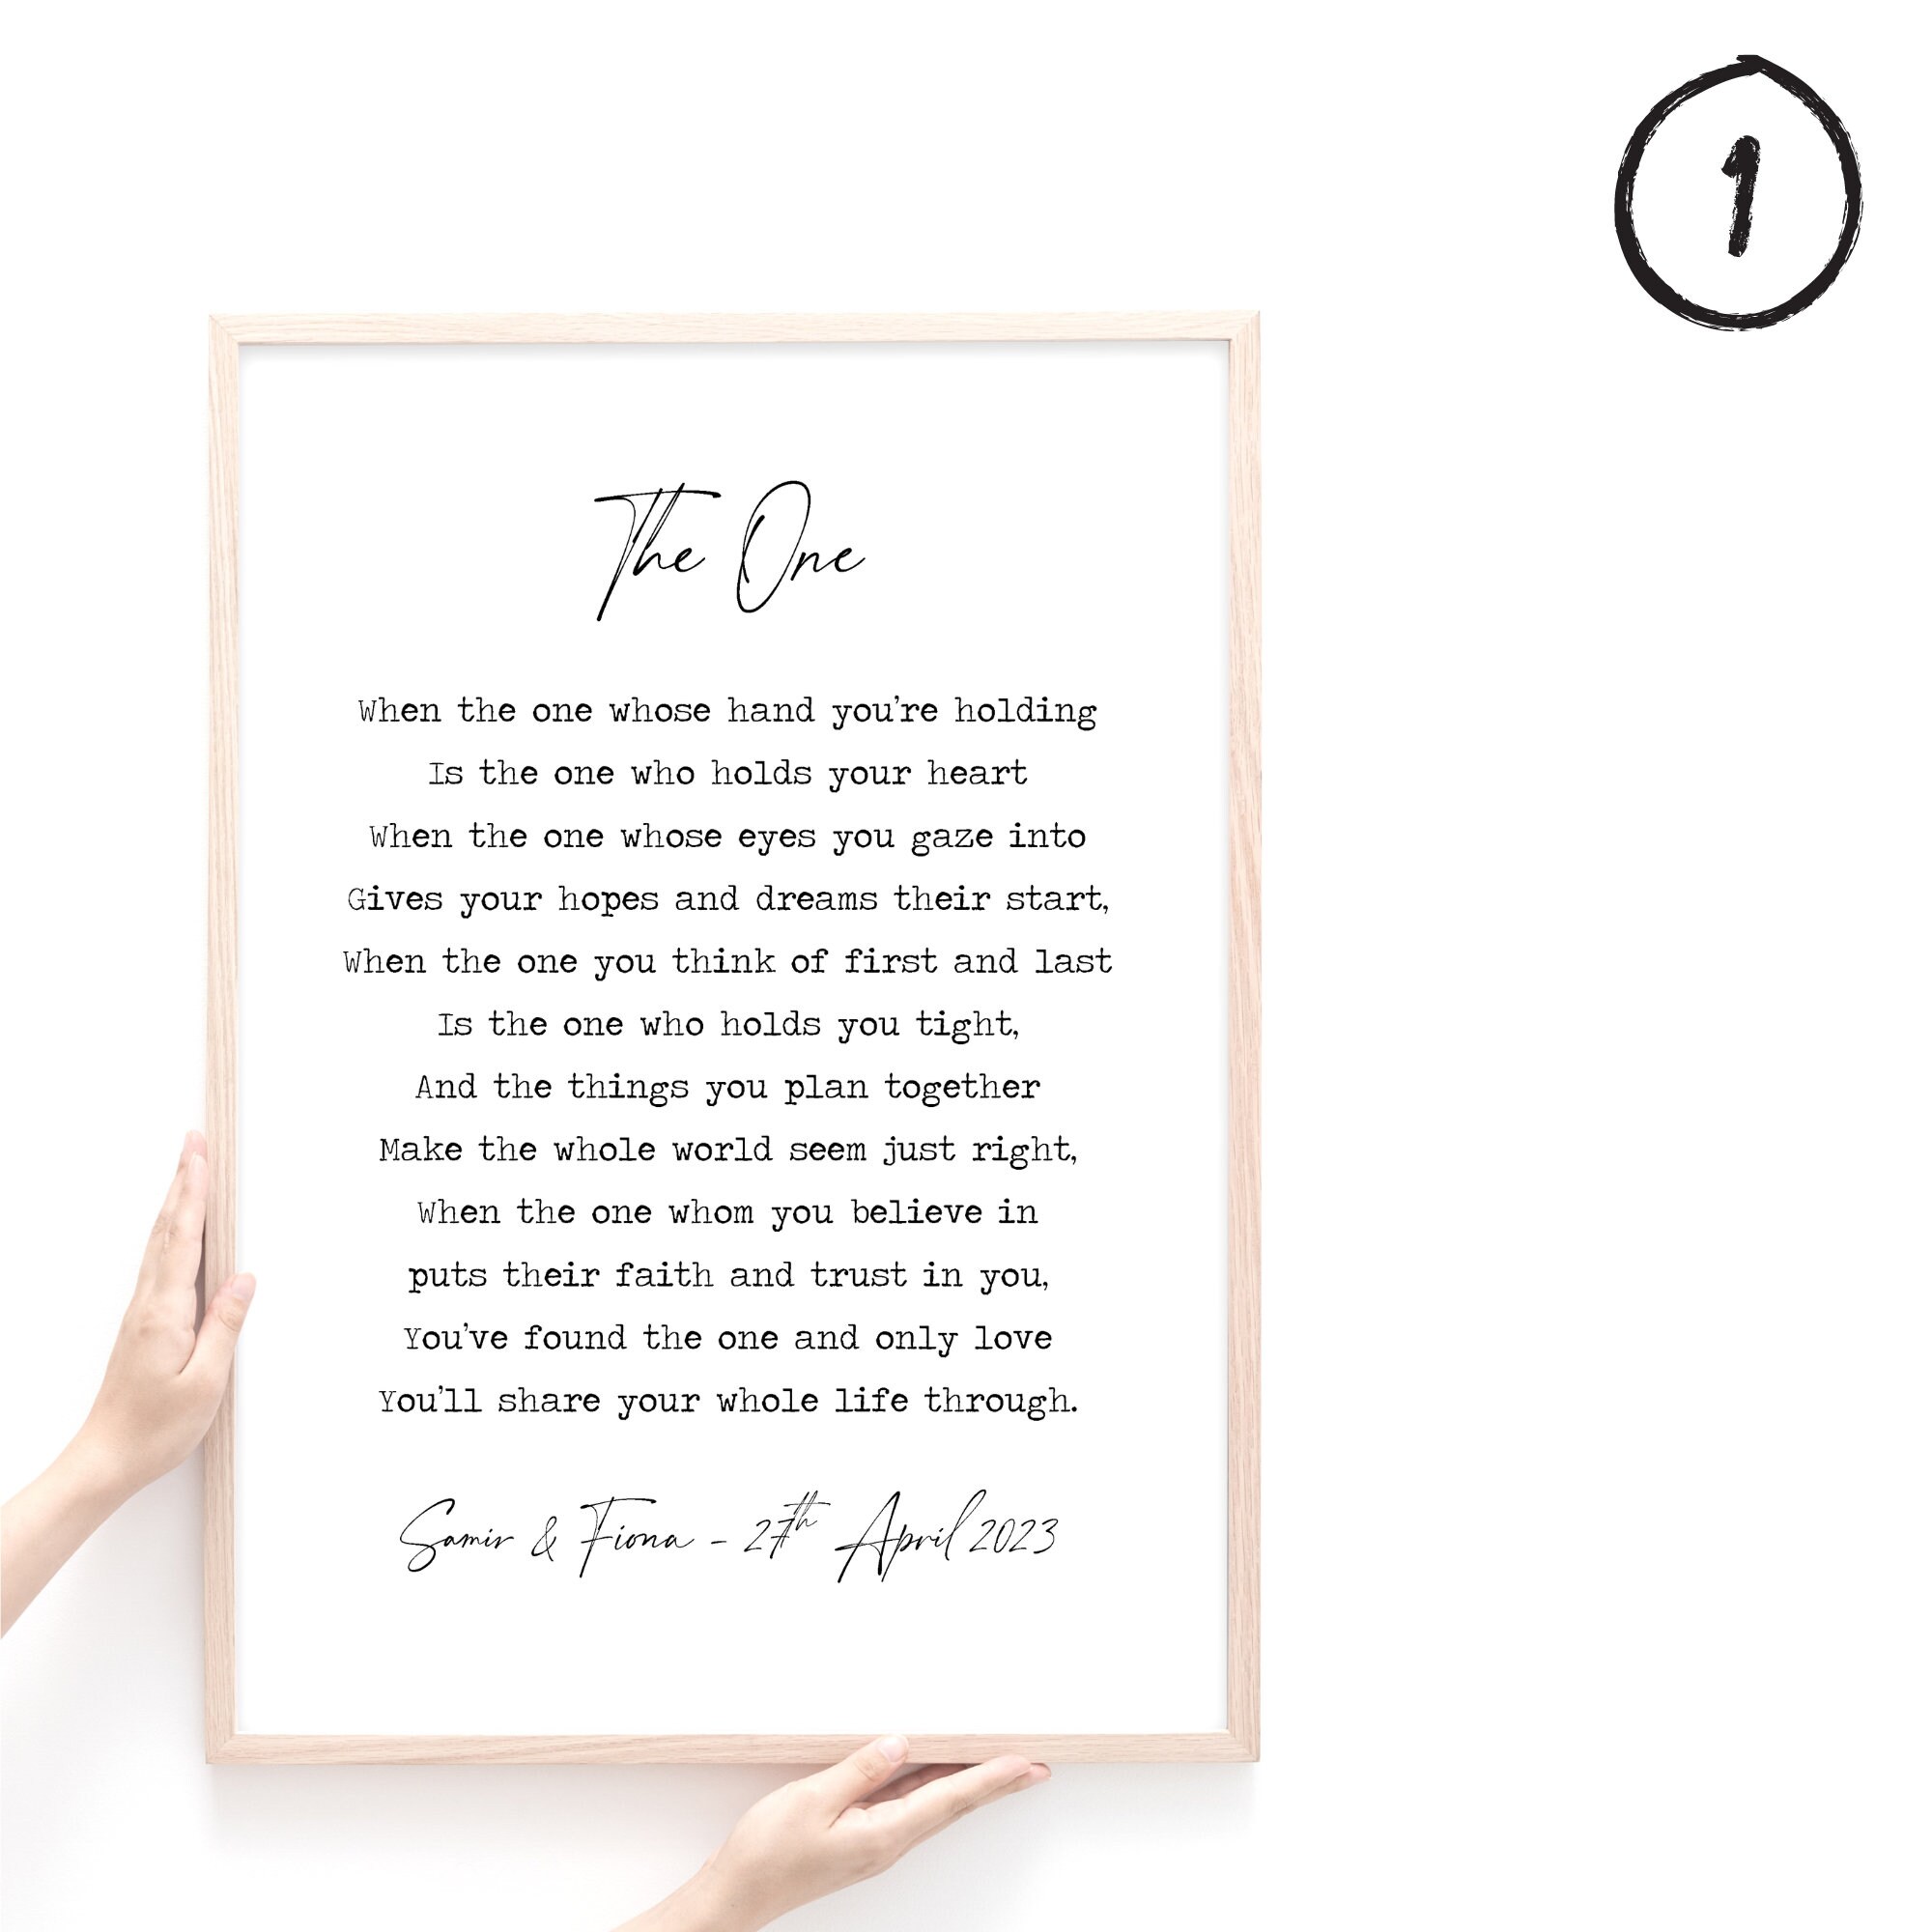 1
The One
When the one whose hand you're holding
Is the one who holds your heart
When the one whose eyes you gaze into
Gives your hopes and dreams their start,
When the one you think of first and last
Is the one who holds you tight,
And the things you plan together
Make the whole world seem just right,
When the one whom you believe in
puts their faith and trust in you,
You've found the one and only love
You'll share your whole life through.
Samir & Fiona - 27th April 2023